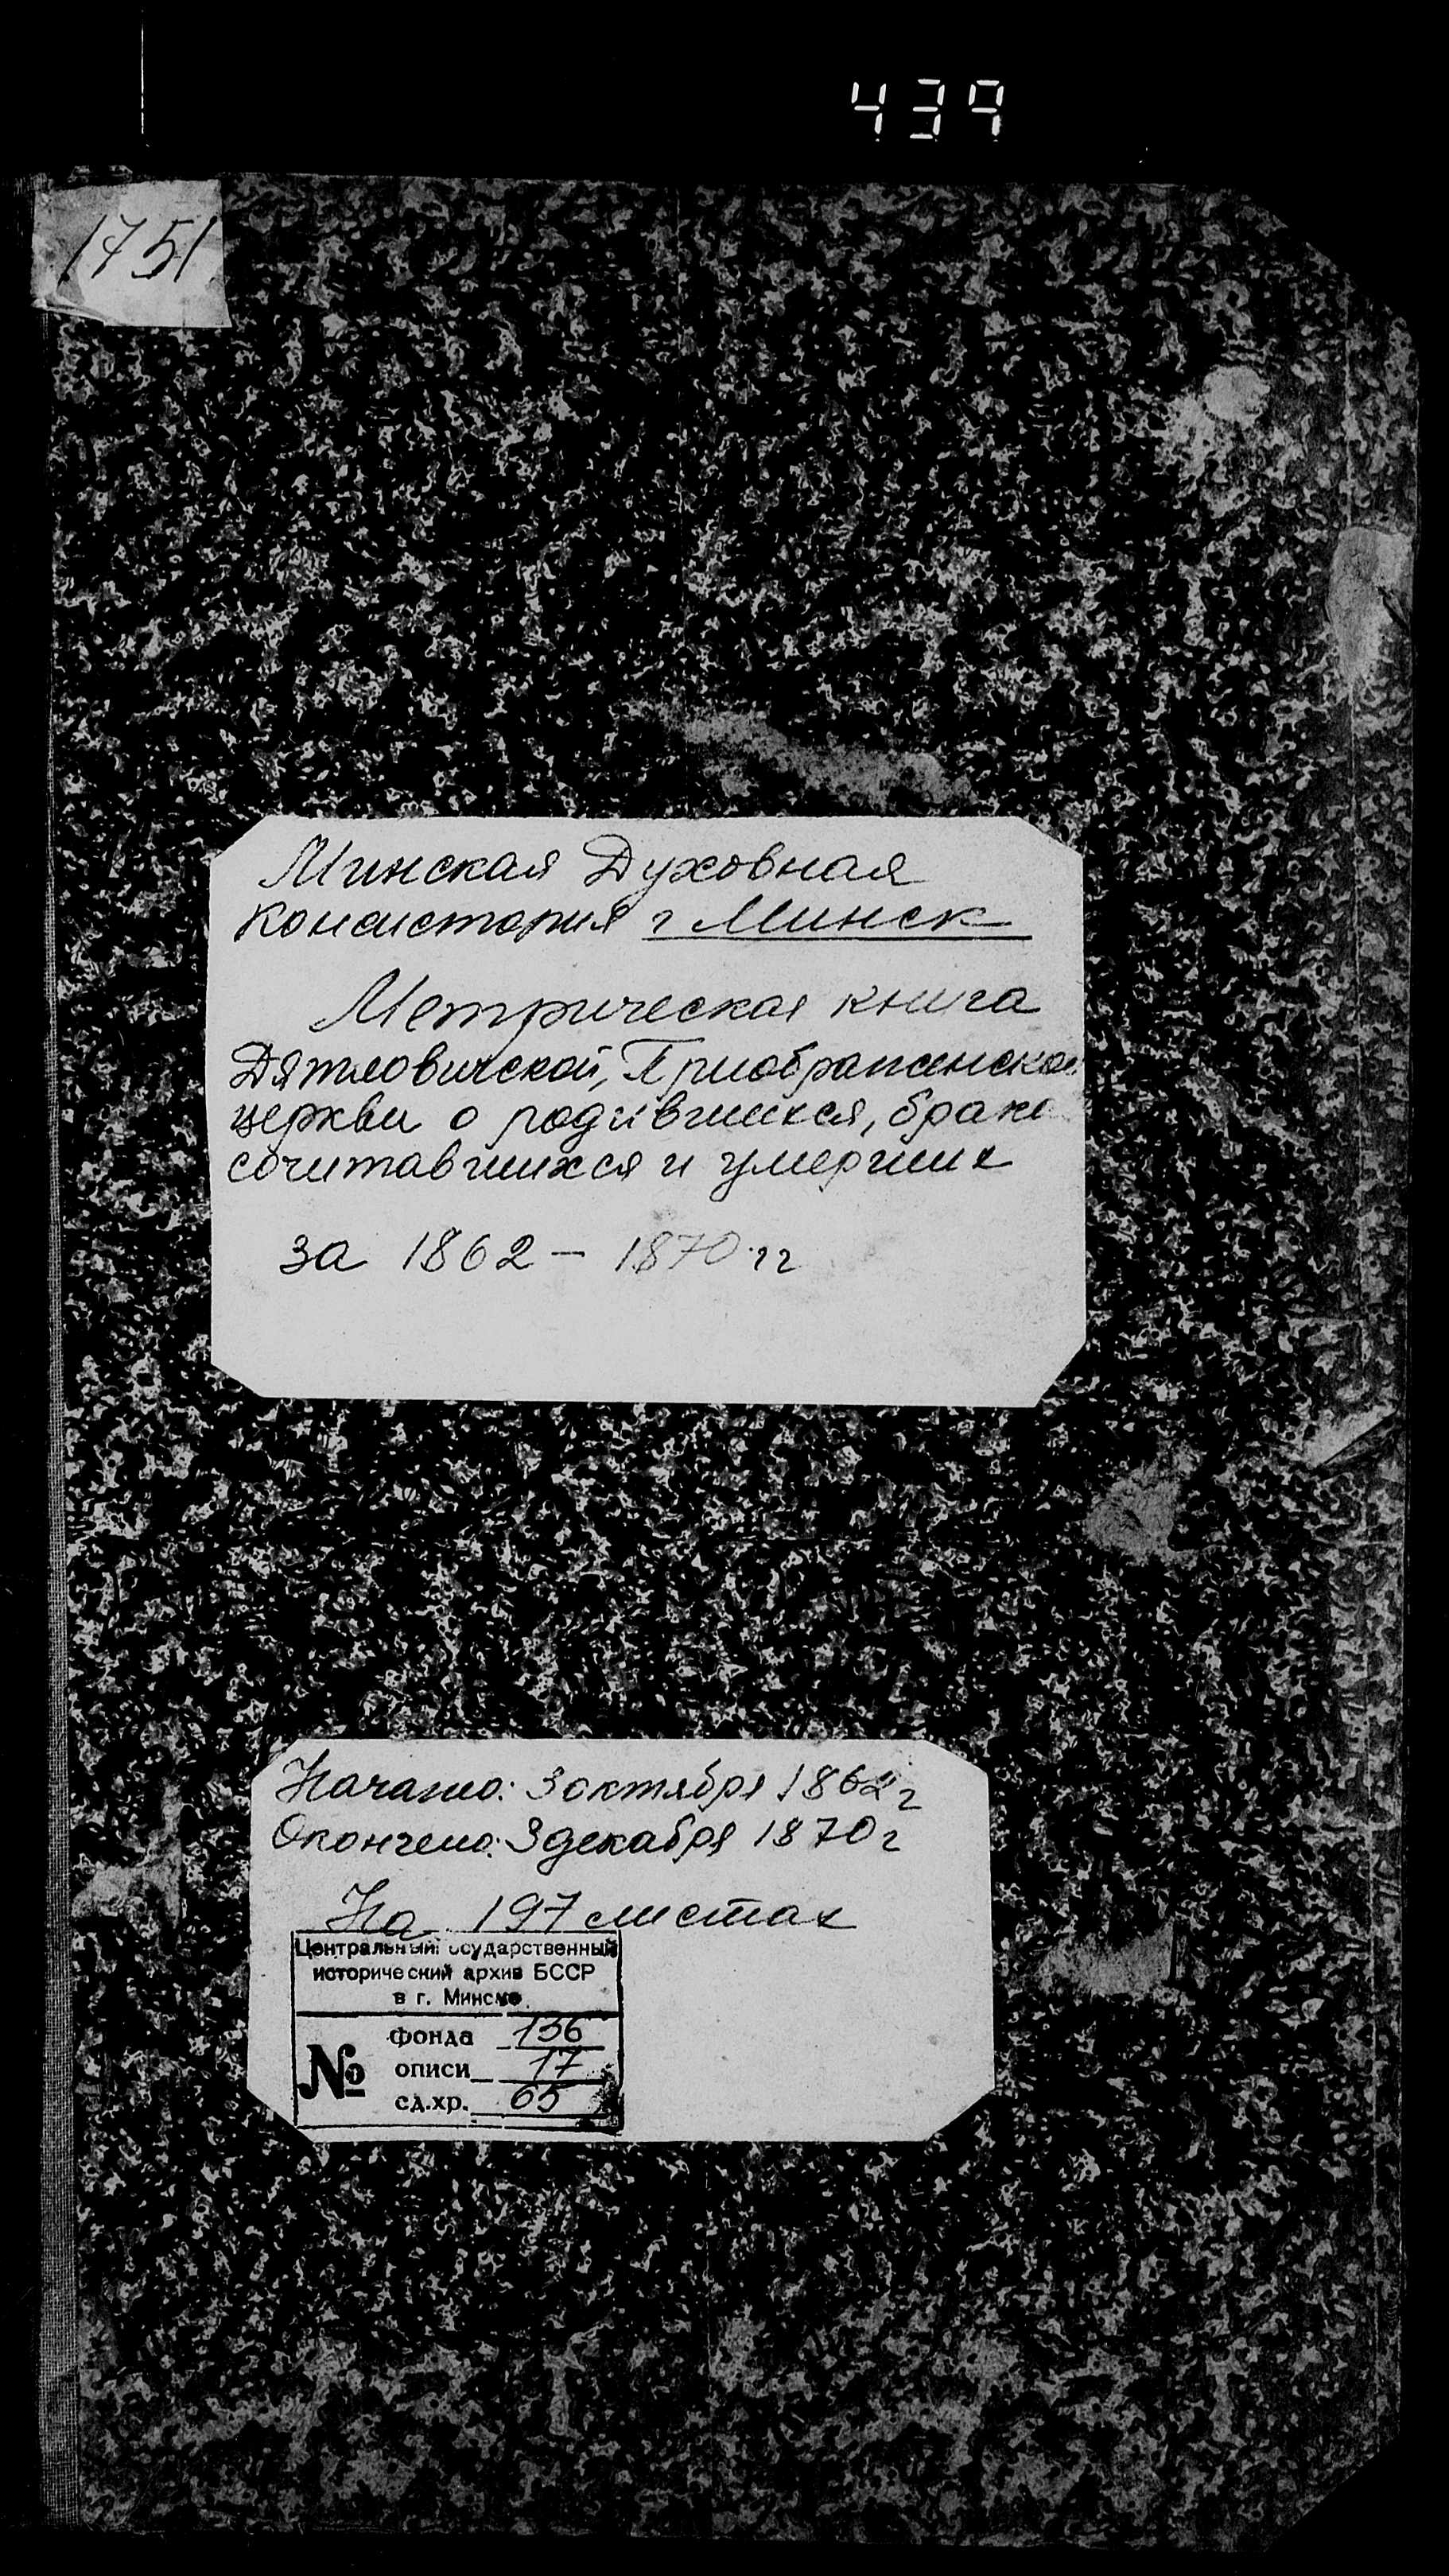 439
1751
Минская Духовная
Консистория г Минск
Метрическая книга
Дятловичской, Приображенской
церкви о родившихся, брако
сочитавшихся и умерших
за 1862 – 1870 гг
Начато: 3 октября 1862 г
Окончено: 3 декабря 1870 г
На 197 листах
Центральный государственный
исторический архив БССР
в г. Минске
№ фонда 136
описи 17
ед.хр. 65